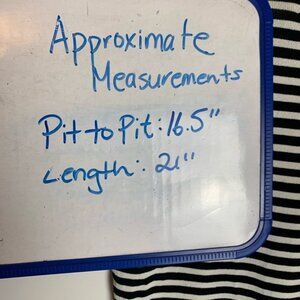 Approximate
Measurements
Pit to Pit: 16.5"
Length: 21"